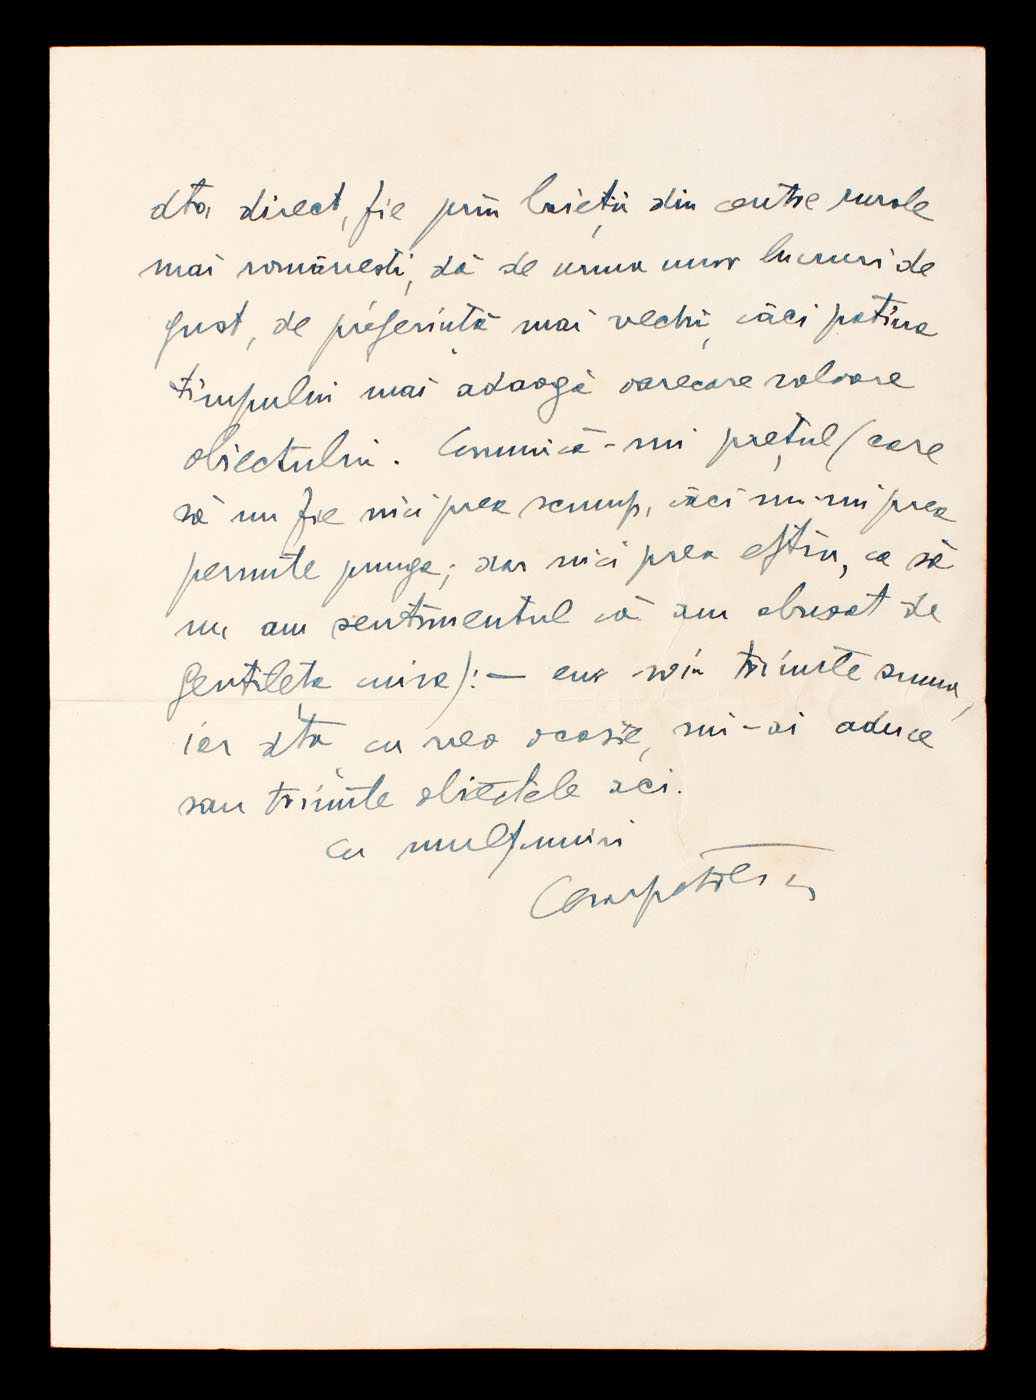 dta, direct, fie prin băieții din centre rurale
mai românești, dă de urma unor lucruri de
gust, de preferință mai vechi, căci patina
timpului mai adaogă oarecare valoare
obiectului. Comunică-mi prețul (care
să nu fie nici prea scump, căci nu-mi prea
permite punga; dar nici prea eftin, ca să
nu am sentimentul că am abuzat de
gentileța cuiva): — eu voiu trimite suma,
iar dta, cu vreo ocazie, mi-ai aduce
sau trimite obiectele aci.
Cu mulțumiri